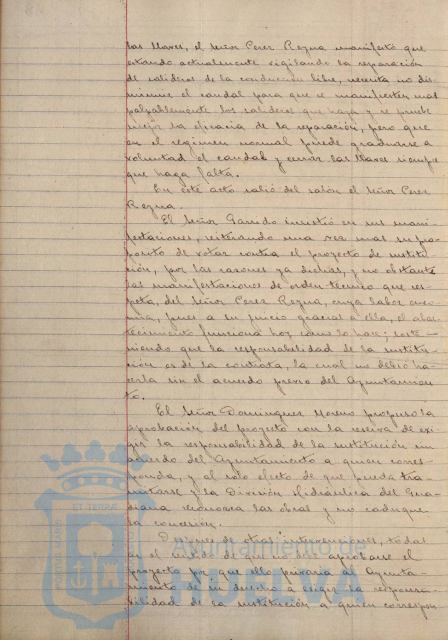 las llaves, el Señor Perez Reyna manifestó que
estando actualmente vigilando la reparación
de salideros de la conducción libre, necesita no dis-
minuir el caudal para que se manifiesten mas
palpablemente los salideros que haya y se pruebe
mejor la eficacia de la reparación, pero que
en el regimen normal puede graduarse a
voluntad el caudal y cerrar las llaves siempre
que haga falta.
En este acto salió del salón el Señor Perez
Reyna.
El Señor Garrido insistió en sus mani-
festaciones, reiterando una vez mas su pro-
posito de votar contra el proyecto de sustitu-
ción, por las razones ya dichas, y no obstante
las manifestaciones de orden tecnico que res-
peta, del Señor Perez Reyna, cuya labor enco-
mia, pues a su juicio gracias a ella, el abas-
tecimiento funciona hoy como lo hace; soste-
niendo que la responsabilidad de la sustitu-
ción es de la contrata, la cual no debió ha-
cerla sin el acuerdo previo del Ayuntamien-
to.
El Señor Dominguez Moreno propuso la
aprobación del proyecto con la reserva de exi-
gir la responsabilidad de la sustitución sin
acuerdo del Ayuntamiento a quien corres-
ponda, y al solo efecto de que pueda tra-
mitarse y la División Hidráulica del Gua-
diana reconozca las obras y no caduque
la concesión.
Despues de otras intervenciones, todas
en el sentido de no ser aprobarse el
proyecto por que ello privaria al Ayunta-
miento de su derecho a exigir la responsa-
bilidad de la sustitución a quien correspon-
Ayuntamiento de
HUELVA
PORTUS MARIS
ET TERRAE